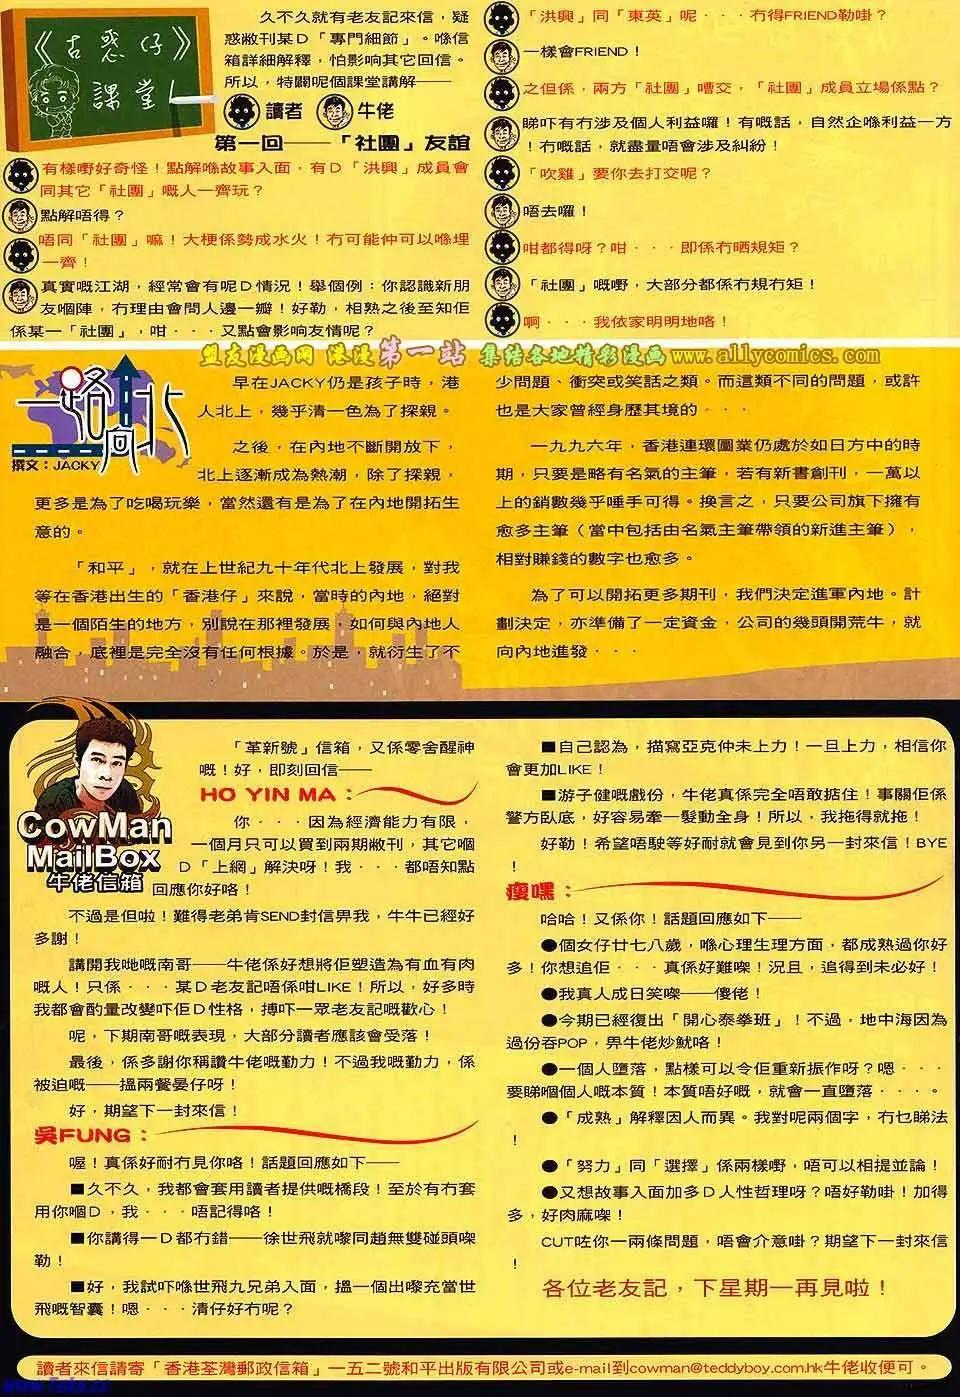 《古惑仔》
課堂！
久不久就有老友記來信，疑
惑敝刊某D「專門細節」。喺信
箱詳細解釋，怕影响其它回信。
所以，特闢呢個課堂講解──
讀者 牛佬
第一回──「社團」友誼
有樣嘢好奇怪！點解喺故事入面，有D「洪興」成員會
同其它「社團」嘅人一齊玩？
點解唔得？
唔同「社團」嘛！大梗係勢成水火！冇可能仲可以喺埋
一齊！
真實嘅江湖，經常會有呢D情況！舉個例：你認識新朋
友嗰陣，冇理由會問人邊一瓣！好勒，相熟之後至知佢
係某一「社團」，咁．．．又點會影响友情呢？
「洪興」同「東英」呢．．．冇得FRIEND勒啩？
一樣會FRIEND！
之但係，兩方「社團」嘈交，「社團」成員立場係點？
睇吓有冇涉及個人利益囉！有嘅話，自然企喺利益一方
！冇嘅話，就盡量唔會涉及糾紛！
「吹雞」要你去打交呢？
唔去囉！
咁都得呀？咁．．．即係冇晒規矩？
「社團」嘅嘢，大部分都係冇規冇矩！
啊．．．我依家明明地咯！
盟友漫画网 港漫第一站 集结各地精彩漫画 www.allycomics.com
一路向北
撰文：JACKY
早在JACKY仍是孩子時，港
人北上，幾乎清一色為了探親。
之後，在內地不斷開放下，
北上逐漸成為熱潮，除了探親，
更多是為了吃喝玩樂，當然還有是為了在內地開拓生
意的。
「和平」，就在上世紀九十年代北上發展，對我
等在香港出生的「香港仔」來說，當時的內地，絕對
是一個陌生的地方，別說在那裡發展，如何與內地人
融合，底裡是完全沒有任何根據。於是，就衍生了不
少問題、衝突或笑話之類。而這類不同的問題，或許
也是大家曾經身歷其境的．．．
一九九六年，香港連環圖業仍處於如日方中的時
期，只要是略有名氣的主筆，若有新書創刊，一萬以
上的銷數幾乎唾手可得。換言之，只要公司旗下擁有
愈多主筆（當中包括由名氣主筆帶領的新進主筆），
相對賺錢的數字也愈多。
為了可以開拓更多期刊，我們決定進軍內地。計
劃決定，亦準備了一定資金，公司的幾頭開荒牛，就
向內地進發．．．
CowMan
MailBox
牛佬信箱
「革新號」信箱，又係零舍醒神
嘅！好，即刻回信──
HO YIN MA：
你．．．因為經濟能力有限，
一個月只可以買到兩期敝刊，其它嗰
D「上網」解決呀！我．．．都唔知點
回應你好咯！
不過是但啦！難得老弟肯SEND封信畀我，牛牛已經好
多謝！
講開我哋嘅南哥──牛佬係好想將佢塑造為有血有肉
嘅人！只係．．．某D老友記唔係咁LIKE！所以，好多時
我都會酌量改變吓佢D性格，搏吓一眾老友記嘅歡心！
呢，下期南哥嘅表現，大部分讀者應該會受落！
最後，係多謝你稱讚牛佬嘅勤力！不過我嘅勤力，係
被迫嘅──搵兩餐晏仔呀！
好，期望下一封來信！
吳FUNG：
喔！真係好耐冇見你咯！話題回應如下──
■久不久，我都會套用讀者提供嘅橋段！至於有冇套
用你嗰D，我．．．唔記得咯！
■你講得一D都冇錯──徐世飛就嚟同趙無雙碰頭㗎
勒！
■好，我試吓喺世飛九兄弟入面，搵一個出嚟充當世
飛嘅智囊！嗯．．．清仔好冇呢？
■自己認為，描寫亞克仲未上力！一旦上力，相信你
會更加LIKE！
■游子健嘅戲份，牛佬真係完全唔敢掂住！事關佢係
警方臥底，好容易牽一髮動全身！所以，我拖得就拖！
好勒！希望唔駛等好耐就會見到你另一封來信！BYE
！
瘦嘿：
哈哈！又係你！話題回應如下──
●個女仔廿七八歲，喺心理生理方面，都成熟過你好
多！你想追佢．．．真係好難㗎！況且，追得到未必好！
●我真人成日笑㗎──傻佬！
●今期已經復出「開心泰拳班」！不過，地中海因為
過份吞POP，畀牛佬炒魷咯！
●一個人墮落，點樣可以令佢重新振作呀？嗯．．．
要睇嗰個人嘅本質！本質唔好嘅，就會一直墮落．．．。
●「成熟」解釋因人而異。我對呢兩個字，冇乜睇法
！
●「努力」同「選擇」係兩樣嘢，唔可以相提並論！
●又想故事入面加多D人性哲理呀？唔好勒啩！加得
多，好肉麻㗎！
CUT咗你一兩條問題，唔會介意啩？期望下一封來信
！
各位老友記，下星期一再見啦！
讀者來信請寄「香港荃灣郵政信箱」一五二號和平出版有限公司或e-mail到cowman@teddyboy.com.hk牛佬收便可。